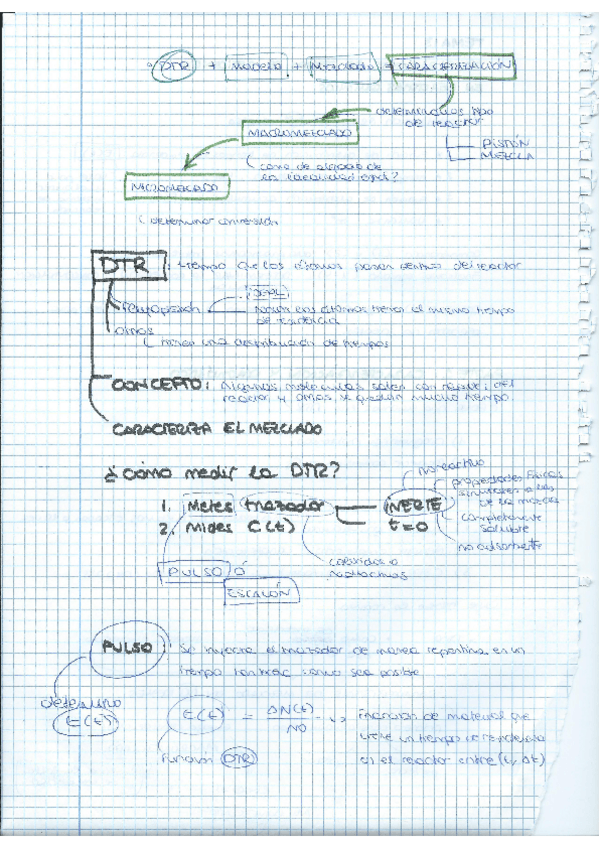 DTR + Modelo + Mezclado = CARACTERIZACIÓN
determinamos tipo
de reactor
PISTÓN
MEZCLA
MACROMEZCLADO
como de
MICROMEZCLADO
determinar conversión
DTR : tiempo que los átomos pasan dentro del reactor
IDEAL
todos los átomos tienen el mismo tiempo
de residencia
otros
tienen una distribución de tiempos
CONCEPTO: Algunas moléculas salen con rapidez del
reactor y otras se quedan mucho tiempo.
CARACTERIZA EL MEZCLADO
¿Cómo medir la DTR?
no reactivo
propiedades físicas
similares a las
de la mezcla
completamente
soluble
no adsorbente
1. Metes trazador INERTE
2. Mides C(t) t=0
coloridos o
radiactivos
PULSO ó
ESCALÓN
PULSO : Se inyecta el trazador de manera repentina en un
tiempo tan como sea posible
determino
E(t)
E(t) = ΔN(t)/N0 Fracción de material que
tiene un tiempo de residencia
en el reactor entre (t, Δt)
función DTR